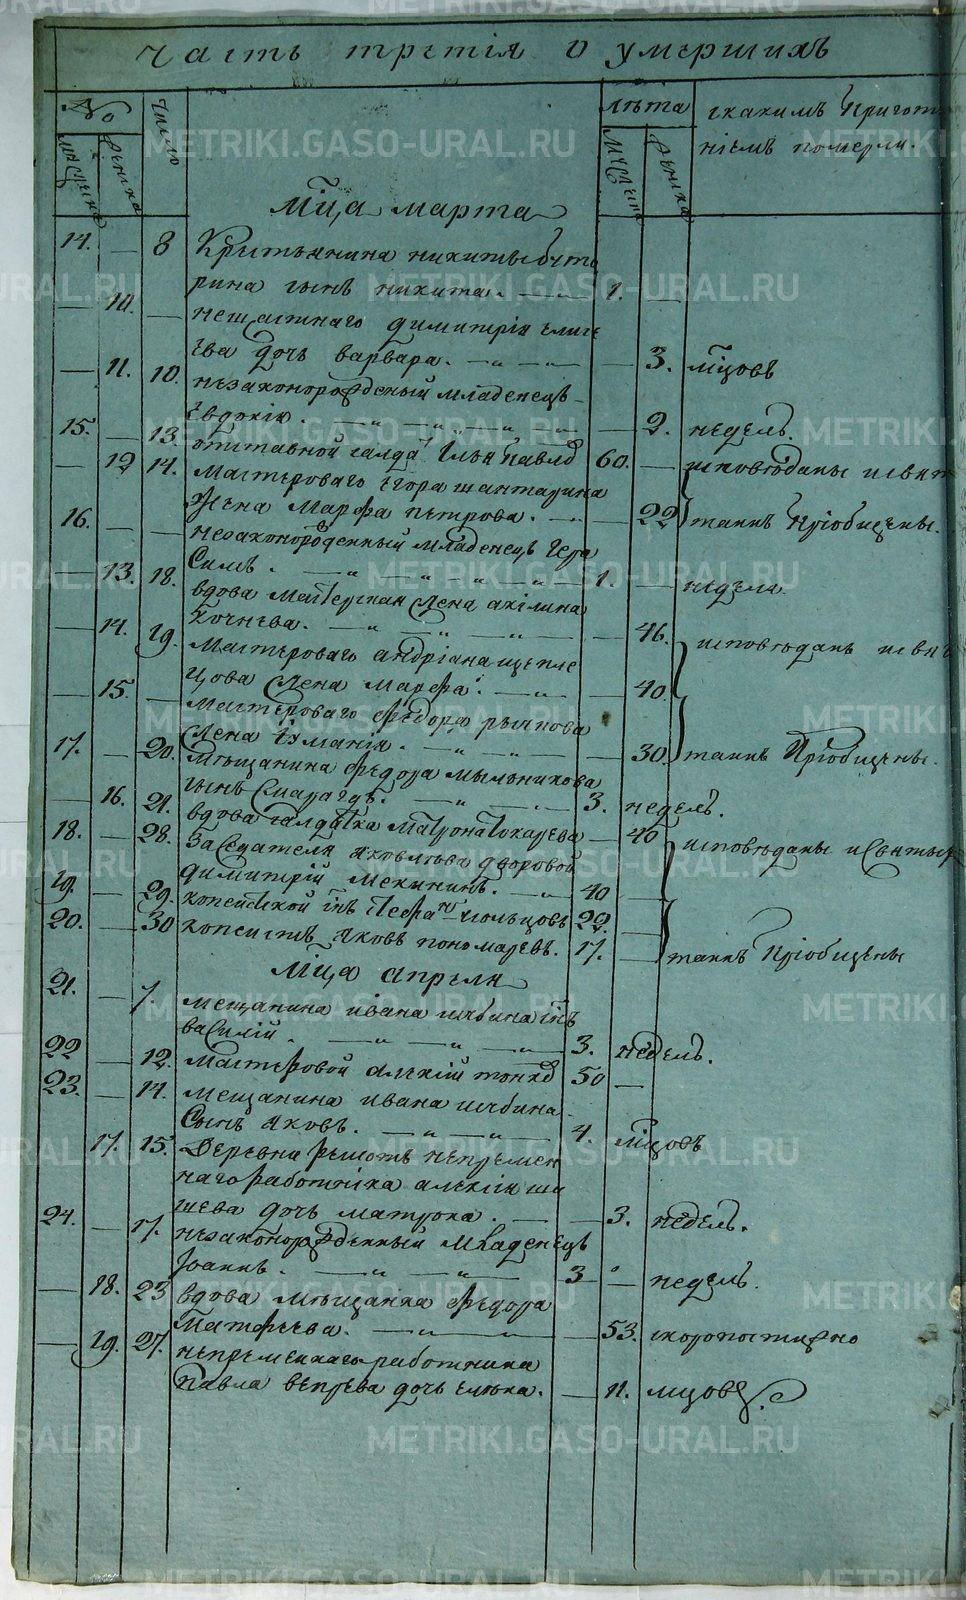 Часть третія о умершихъ
№ Число лѣта скакимъ Пригот
мускиха женска мускиха женска ніемъ померли.
Мца марта
14. — 8 Крестьянина никиты бута
рина сынъ никита. — 1. —
— 10. — нещастнаго димитрія елисе
ева дочь варвара. — „ — „ — 3. мцовъ
— 11. 10. незаконорожденный младенецъ
Евдокія. — „ — „ — „ — 2. недель.
15. — 13. отставной салда 60. —
исповѣданы исвят
— 12 14. Мастероваго егора шантарина
жена Марфа петрова. — „ — 22 таинъ Пріобщены.
16. — — незаконорожденный младенецъ Гера
Симъ. — „ — „ — „ — 1. — неделя.
— 13. 18. вдова Мастерская жена акілина
Кочнева. — „ — „ — „ — 46.
исповѣданъ исвят
— 14. 19. Мастероваго андріана щепле
цова жена Марфа. — „ — 40.
— 15. — Мастероваго федора рычкова
жена — „ — „ — 30 таинъ Пріобщены.
17. — 20. Мѣщанина федора мыльникова
сынъ — „ — „ — 3. недель.
— 16. 21. вдова салдатка Матрона Токарева — 40
исповѣданы исвятых
18. — 28. Заседателя яковлева дворовой
димитрій мекининъ. — „ — 40 —
19. — 29. копейской 22. —
20. — 30 копеистъ яковъ пономаревъ. 17. — таинъ Пріобщены
Мца апреля
21. — 7. мещанина ивана шубина снъ
василій. — „ — „ — „ — 3. недель.
22 — 12. мастеровой алексій 50 —
23. — 14. мещанина ивана шубина
Сынъ яковъ. — „ — „ — 4. мцовъ
— 17. 15. Деревни решотъ непремен
наго работника алексія ша
шева дочь матрона. — — 3. недель.
24. — 17. незаконорожденный младенецъ
Іоаннъ. — „ — „ — 3 — недель.
— 18. 23 вдова мѣщанка федора
Матфеева. — „ — — 53. скоропостижно
— 19. 27. непременнаго работника
Павла вепрева дочь елена. — 11. мцовъ.
METRIKI.GASO-URAL.RU